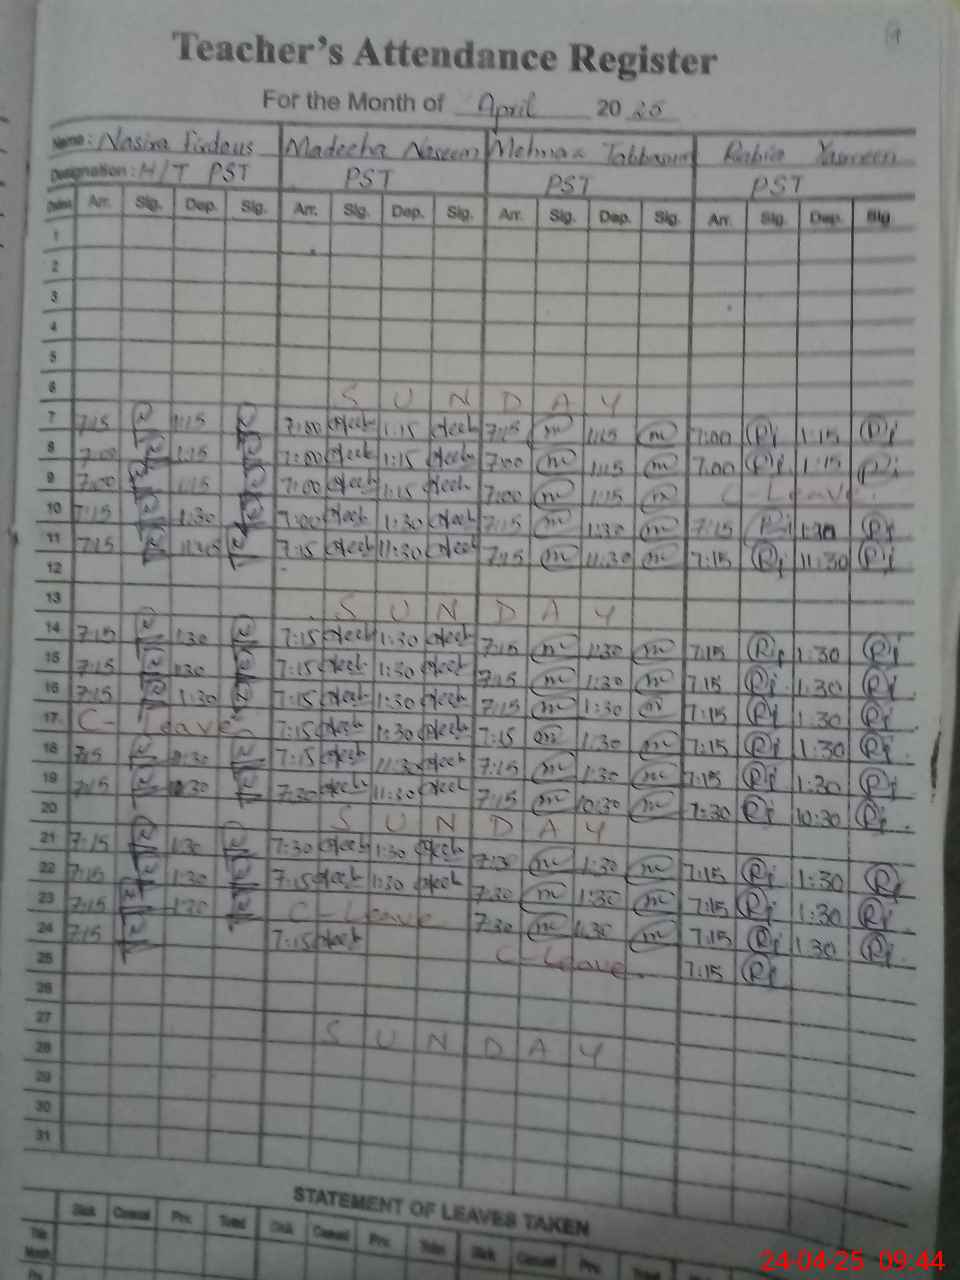 Teacher's Attendance Register
For the Month of April 20 25
Name: Nasira Firdous Madeeha Naseem Mehnaz Tabbasum Rabia Yasmeen
Designation: H/T PST PST PST PST
Dates Arr. Sig. Dep. Sig. Arr. Sig. Dep. Sig. Arr. Sig. Dep. Sig. Arr. Sig. Dep. Sig
1
2
3
4
5
6 SUNDAY
7 7:15 N 1:15 N 7:00 1:15 7:15 m 1:15 m 7:00 Ri 1:15 Ri
8 7:00 N 1:15 N 7:00 1:15 7:00 m 1:15 m 7:00 Ri 1:15 Ri
9 7:00 N 1:15 N 7:00 1:15 7:00 m 1:15 m C-Leave.
10 7:15 N 1:30 N 7:00 1:30 7:15 m 1:30 m 7:15 Ri 1:30 Ri
11 7:15 N 11:30 N 7:15 11:30 7:15 m 11:30 m 7:15 Ri 11:30 Ri
12
13 SUNDAY
14 7:15 N 1:30 N 7:15 1:30 7:15 m 1:30 m 7:15 Ri 1:30 Ri
15 7:15 N 1:30 N 7:15 1:30 7:15 m 1:30 m 7:15 Ri 1:30 Ri
16 7:15 N 1:30 N 7:15 1:30 7:15 m 1:30 m 7:15 Ri 1:30 Ri
17 C-Leave 7:15 1:30 7:15 m 1:30 m 7:15 Ri 1:30 Ri
18 7:15 N N 7:15 11:30 7:15 m 1:30 m 7:15 Ri 1:30 Ri
19 7:15 N N 7:30 11:30 7:15 m 10:30 m 7:30 Ri 10:30 Ri
20 SUNDAY
21 7:15 N 1:30 N 7:30 1:30 7:30 m 1:30 m 7:15 Ri 1:30 Ri
22 7:15 N 1:30 N 7:15 1:30 7:30 m 1:30 m 7:15 Ri 1:30 Ri
23 7:15 N 1:30 N C-Leave 7:30 m 1:30 m 7:15 Ri 1:30 Ri
24 7:15 N 7:15 C-Leave. 7:15 Ri
25
26
27 SUNDAY
28
29
30
31
STATEMENT OF LEAVES TAKEN
Sick Casual Prv. Total Sick Casual Prv. Total Sick Casual Prv. Total
This Month
Prv.
24-04-25 09:44